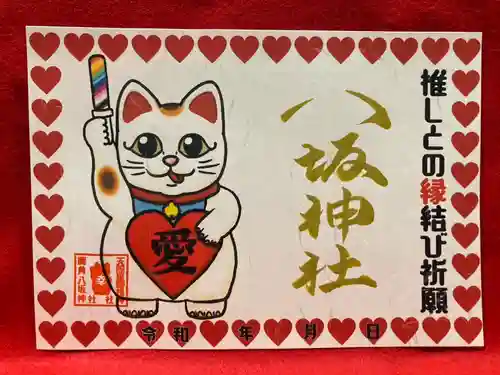 推しとの縁結び祈願
八坂神社
愛
幸
八坂神社
令和 年 月 日